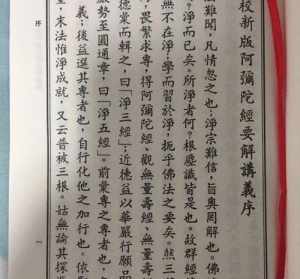 校新版阿彌陀經要解講義序
難聞，凡情忽之也，淨宗難信，旨奧罔解也。佛
？淨而已矣。所淨者何？根塵識皆是也。故群經
無不在淨，學而習於淨，扼乎佛法之要矣。然三
，畏繁求專，得阿彌陀經、觀無量壽經、無量壽
德彙而輯之，曰「淨三經」；近德益以華嚴行願
勢至圓通章，曰「淨五經」。前彙專之專者也，
義；後益選其專者也，自行化他之加行也。依
，末法惟淨成就，又云普被三根。姑無論其探
序
一